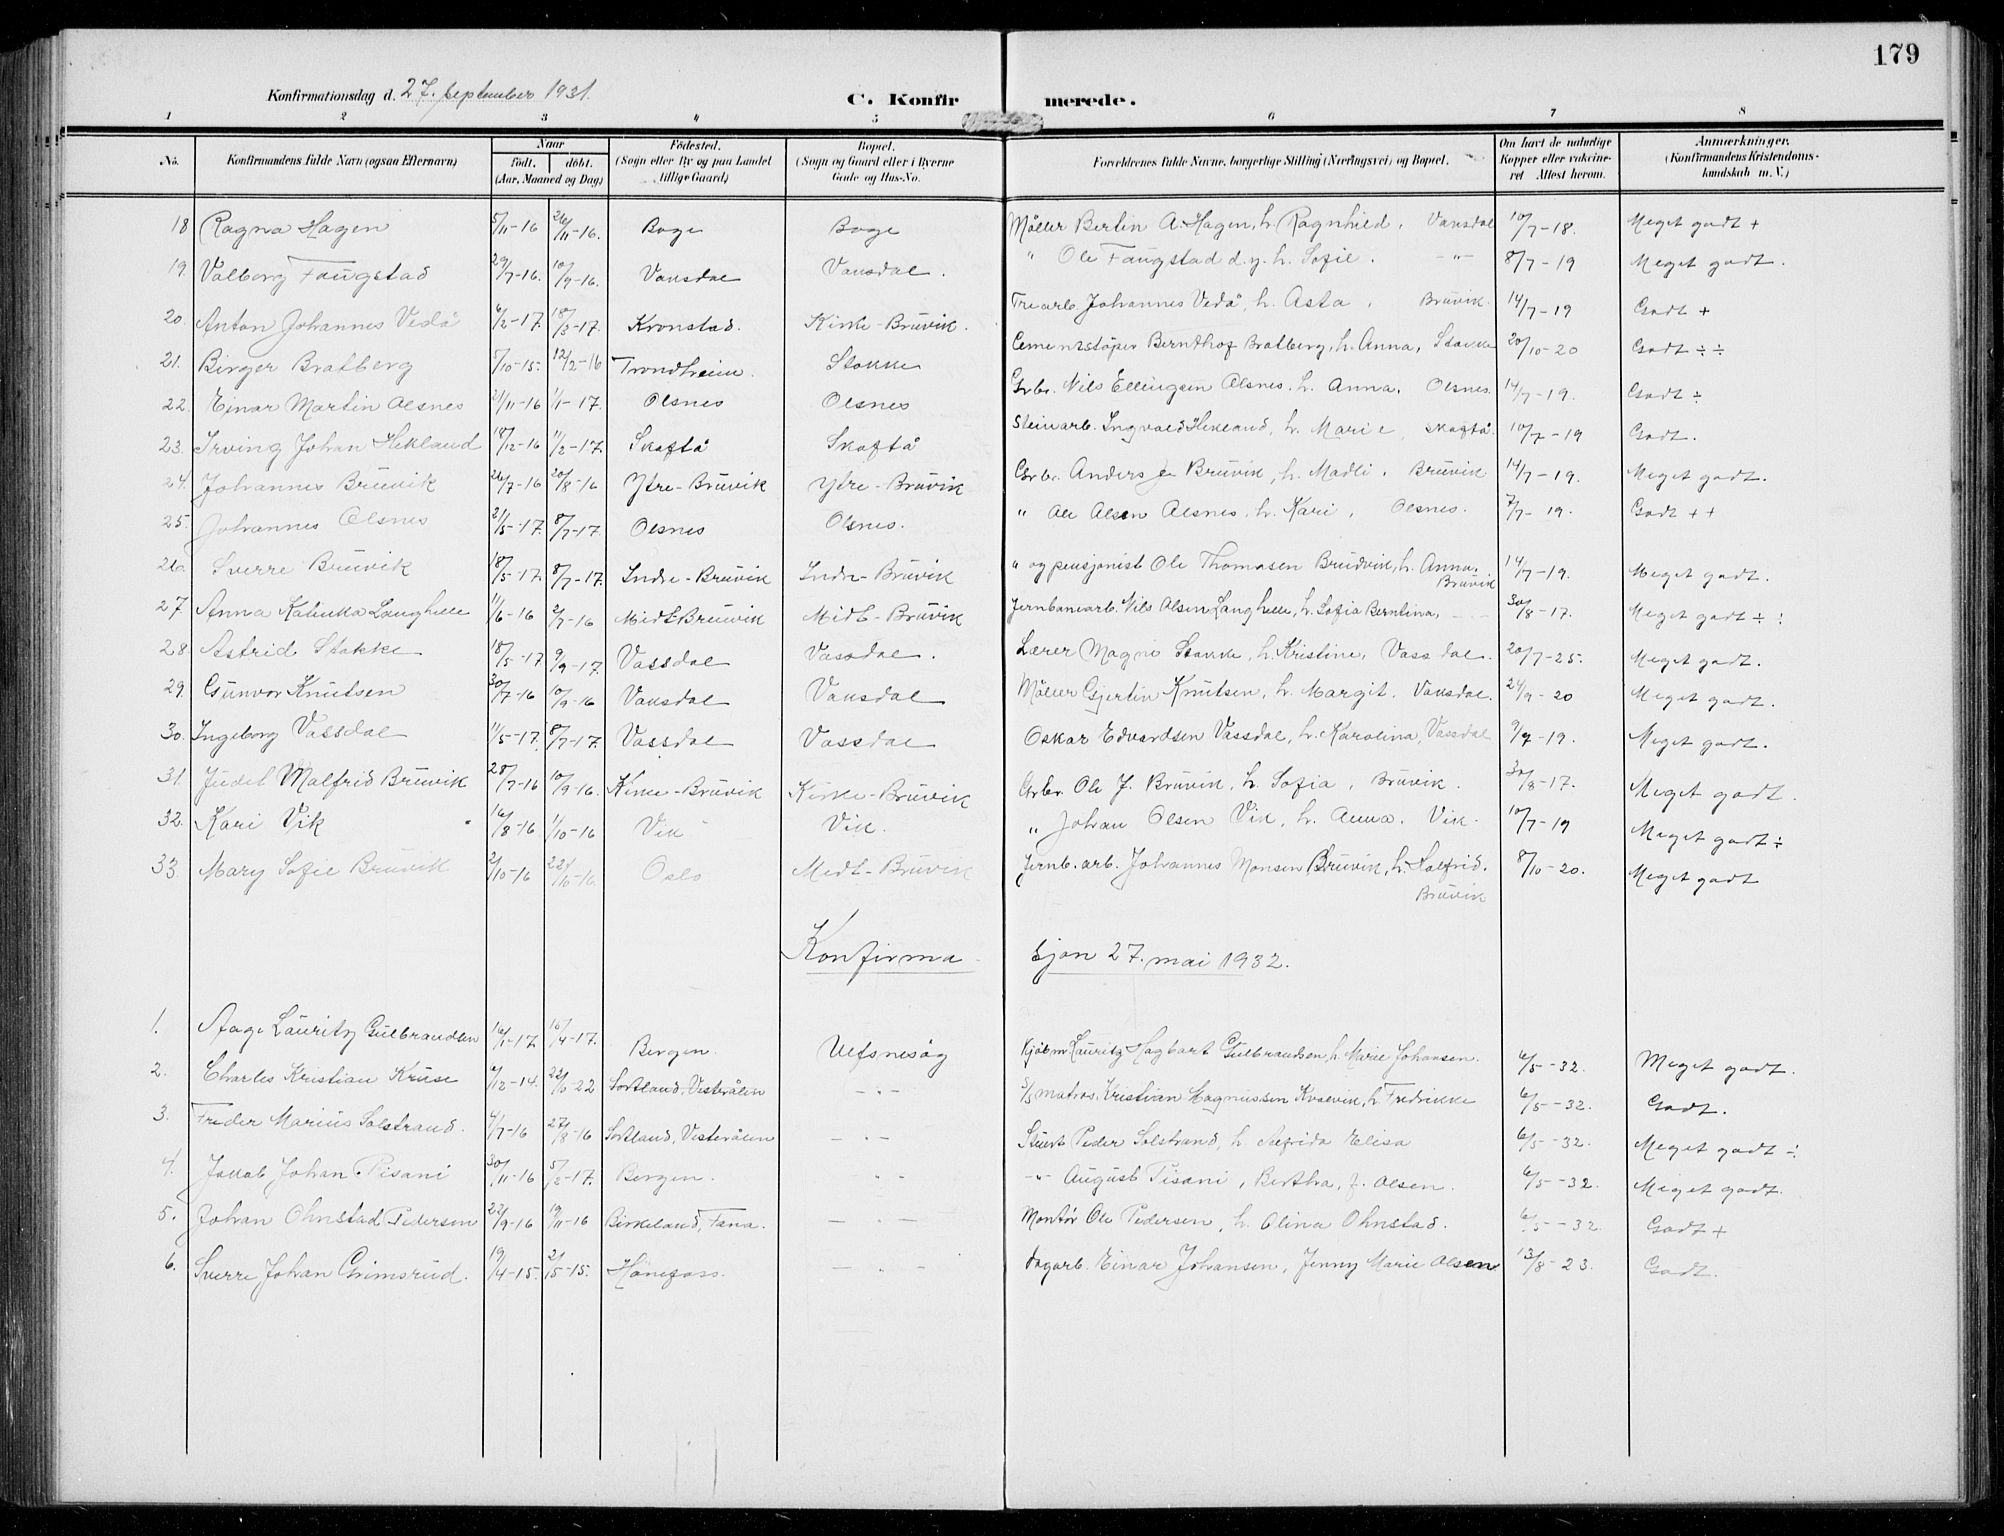 179
Konfirmationsdag d. 27. september 1931.
C. Konfirmerede.
1 2 3 4 5 6 7 8
No. Konfirmandens fulde Navn (ogsaa Efternavn) Naar født. døbt. (Aar, Maaned og Dag) Fødested. (Sogn eller By og paa Landet tillige Gaard) Bopæl. (Sogn og Gaard eller i Byerne Gade og Hus-No. Forældrenes fulde Navne, borgerlige Stilling (Næringsvei) og Bopæl. Om havt de naturlige Kopper eller vakcineret Attest herom. Anmærkninger. (Konfirmandens Kristendomskundskab m. V.)
18 Ragna Hagen 5/11-16 26/11-16. Boge Boge Möller Bertin A. Hagen, h. Ragnhild, Vaksdal 10/7-18. Meget godt +
19. Valborg Faugstad 29/7-16. 10/9-16. Vaksdal Vaksdal. " Ole Faugstad d.y. h. Sofie. -"- 8/7-19 Meget godt.
20. Anton Johannes Vedå 6/2-17. 18/3-17. Kronstad. Kirke-Bruvik. Trearb. Johannes Vedå, h. Asta, Bruvik. 14/7-19 Godt +
21. Birger Bratberg 5/10-15. 12/2-16 Trondheim. Stokke Cementstöper Bernthof Bratberg, h. Anna, Stokke 20/10-20 Godt ÷÷
22. Einar Martin Olsnes 21/11-16 1/1-17. Olsnes Olsnes Grbr. Nils Ellingsen Olsnes. h. Anna. Olsnes. 14/7-19. Godt ÷
23. Irving Johan Hekland 18/12-16 11/2-17. Skaftå Skaftå Steinarb. Ingvald Hekland, h. Marie, Skaftå. 10/7-19 Godt.
24. Johannes Bruvik 26/7-16 20/8-16 Ytre-Bruvik Ytre-Bruvik Grbr. Anders J. Bruvik, h. Madli. Bruvik 14/7-19. Meget godt.
25. Johannes Olsnes 21/5-17. 8/7-17. Olsnes Olsnes. " Ole Olsen Olsnes, h. Kari, Olsnes. 7/7-19. Godt ++
26. Sverre Bruvik 18/5-17. 8/7-17. Indre-Bruvik Indre-Bruvik " og pensjonist Ole Thomasen Brudvik, h. Anna. 14/7-19. Meget godt.
Bruvik
27 Anna Katinka Langhelle 11/6-16 2/7-16 Midt-Bruvik Midt-Bruvik Jernbanearb. Nils Olsen Langhelle, h. Sofia Berntina, -"- 30/8-17. Meget godt ÷ :
28 Astrid Stokke 18/5-17 9/9-17. Vassdal Vassdal. Lærer Magne Stokke, h. Kristine, Vassdal. 20/7-25. Meget godt.
29 Gunvor Knutsen 30/7-16 10/9-16 Vaksdal Vaksdal Möller Gjertin Knutsen, h. Margit. Vaksdal. 24/9-20 Meget godt.
30. Ingeborg Vassdal 11/5-17. 8/7-17. Vassdal Vassdal Oskar Edvardsen Vassdal, h. Karolina, Vassdal 9/7-19. Meget godt.
31. Judit Malfrid Bruvik 28/7-16 10/9-16. Kirke-Bruvik Kirke-Bruvik Grbr. Ole J. Bruvik, h. Sofia, Bruvik. 30/8-17. Meget godt.
32. Kari Vik 16/8-16 1/10-16 Vik Vik. " Johan Olsen Vik, h. Anna. Vik. 10/7-19 Meget godt ÷
33. Mary Sofie Bruvik 2/10-16 22/10-16. Oslo Midt-Bruvik Jernb.arb. Johannes Monsen Bruvik, h. Salfrid. 8/10-20. Meget godt
Bruvik
Konfirmasjon 27. mai 1932.
1. Aage Lauritz Gulbrandsen 16/1-17. 15/4-17. Bergen. Ulfsnesøy Kjøbm Lauritz Hagbart Gulbrandsen h. Marie Johansen. 6/5-32. Meget godt.
2. Charles Kristian Kruse 6/12-14. 22/6-22 Sortland, Vesterålen -"- matros, Kristian Magnussen Kvævik, h. Fredrikke 6/5-32. Godt.
3. Freder Marius Solstrand. 4/7-16 27/8-16 Sortland, Vesterålen -"- Stuert Peder Solstrand, h. Alfrida Elisa 6/5-32. Meget godt ÷
4. Jakob Johan Pisani 30/11-16 5/2-17. Bergen. -"- -"- August Pisani, Bertha, f. Olsen. 6/5-32. Meget godt.
5. Johan Ohnstad Pedersen 22/9-16 19/11-16 Birkeland, Fana. -"- Montör Ole Pedersen, h. Olina Ohnstad. 6/5-32. Godt +
6. Sverre Johan Grimsrud. 19/4-15. 2/5-15. Hönefoss. -"- dagarb. Einar Johansen, Jenny Marie Olsen 13/8-23. Godt.